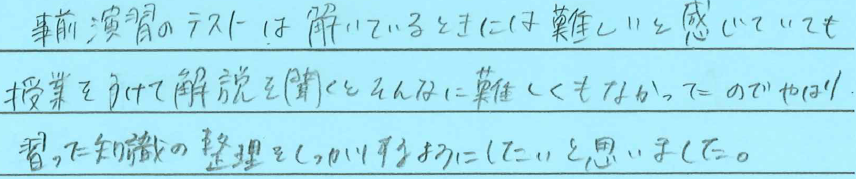 事前演習のテストは解いているときには難しいと感じていても
授業をうけて解説を聞くとそんなに難しくもなかったのでやはり
習った知識の整理をしっかりするようにしたいと思いました。